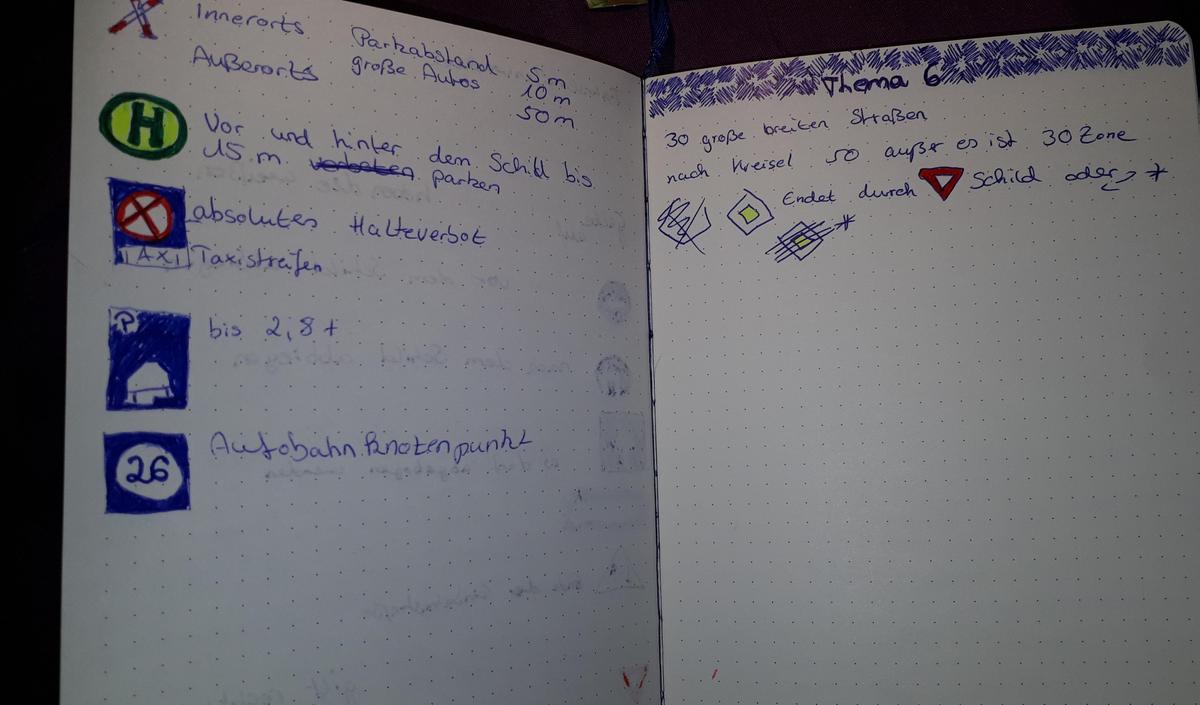 Innerorts Parkabstand 5 m
große Autos 10 m
Außerorts 50 m
H
Vor und hinter dem Schild bis
15 m verboten parken
absolutes Halteverbot
TAXI
Taxistreifen
P
bis 2,8 t
26
Autobahnknotenpunkt
Thema 6
30 große breiten Straßen
nach Kreisel 50 außer es ist 30 Zone
Endet durch Schild oder *
*